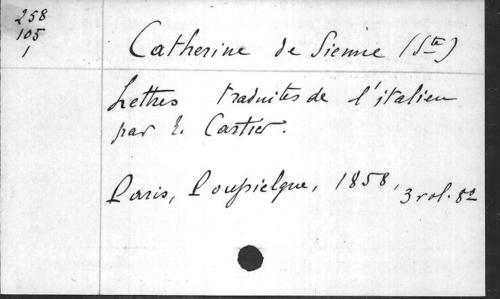 258
105
1
Catherine de Sienne (Ste)
Lettres traduites de l'italien
par E. Cartier.
Paris, Poussielgue, 1858, 3 vol. 8º